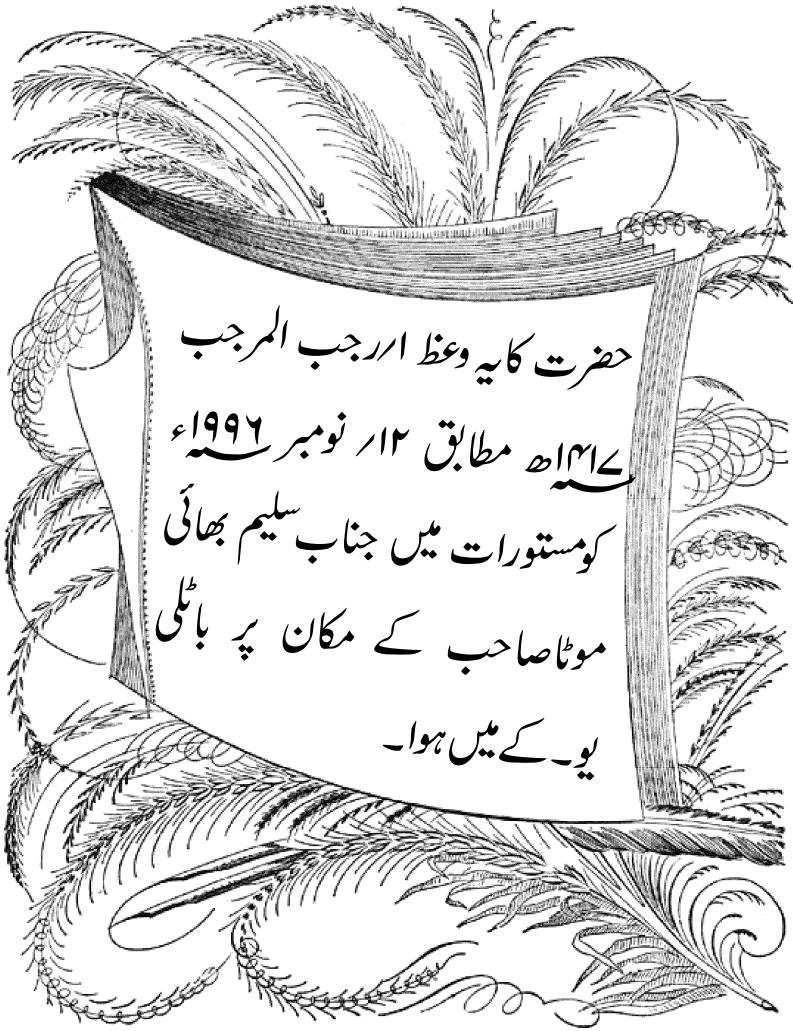 حضرت کا یہ وعظ ۱/رجب المرجب
۱۴۱۷ھ مطابق ۱۲/ نومبر ۱۹۹۶ء
کو مستورات میں جناب سلیم بھائی
موٹا صاحب کے مکان پر باٹلی
یو۔کے میں ہوا۔